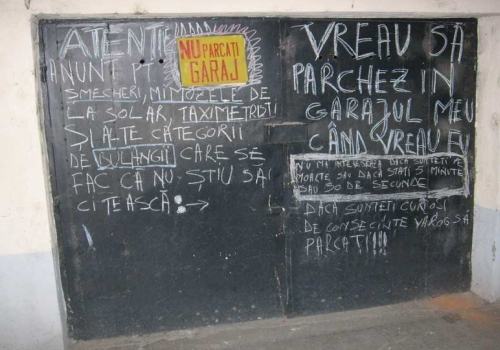 ATENTIE
NU PARCATI
GARAJ
ANUNT PT
SMECHERI, MIMOZELE DE
LA SOLAR, TAXIMETRISTI
ȘI ALTE CATEGORII
DE BULANGII CARE SE
FAC CĂ NU ȘTIU SĂ
CITEASCĂ:→
VREAU SĂ
PARCHEZ IN
GARAJUL MEU
CÂND VREAU EU
NU MĂ INTERESEAZĂ DACĂ SUNTEȚI PE
MOARTE SAU DACĂ STAȚI 5 MINUTE
SAU 30 DE SECUNDE
DACĂ SUNTEȚI CURIOȘI
DE CONSECINȚE VĂ ROG SĂ
PARCAȚI!!!